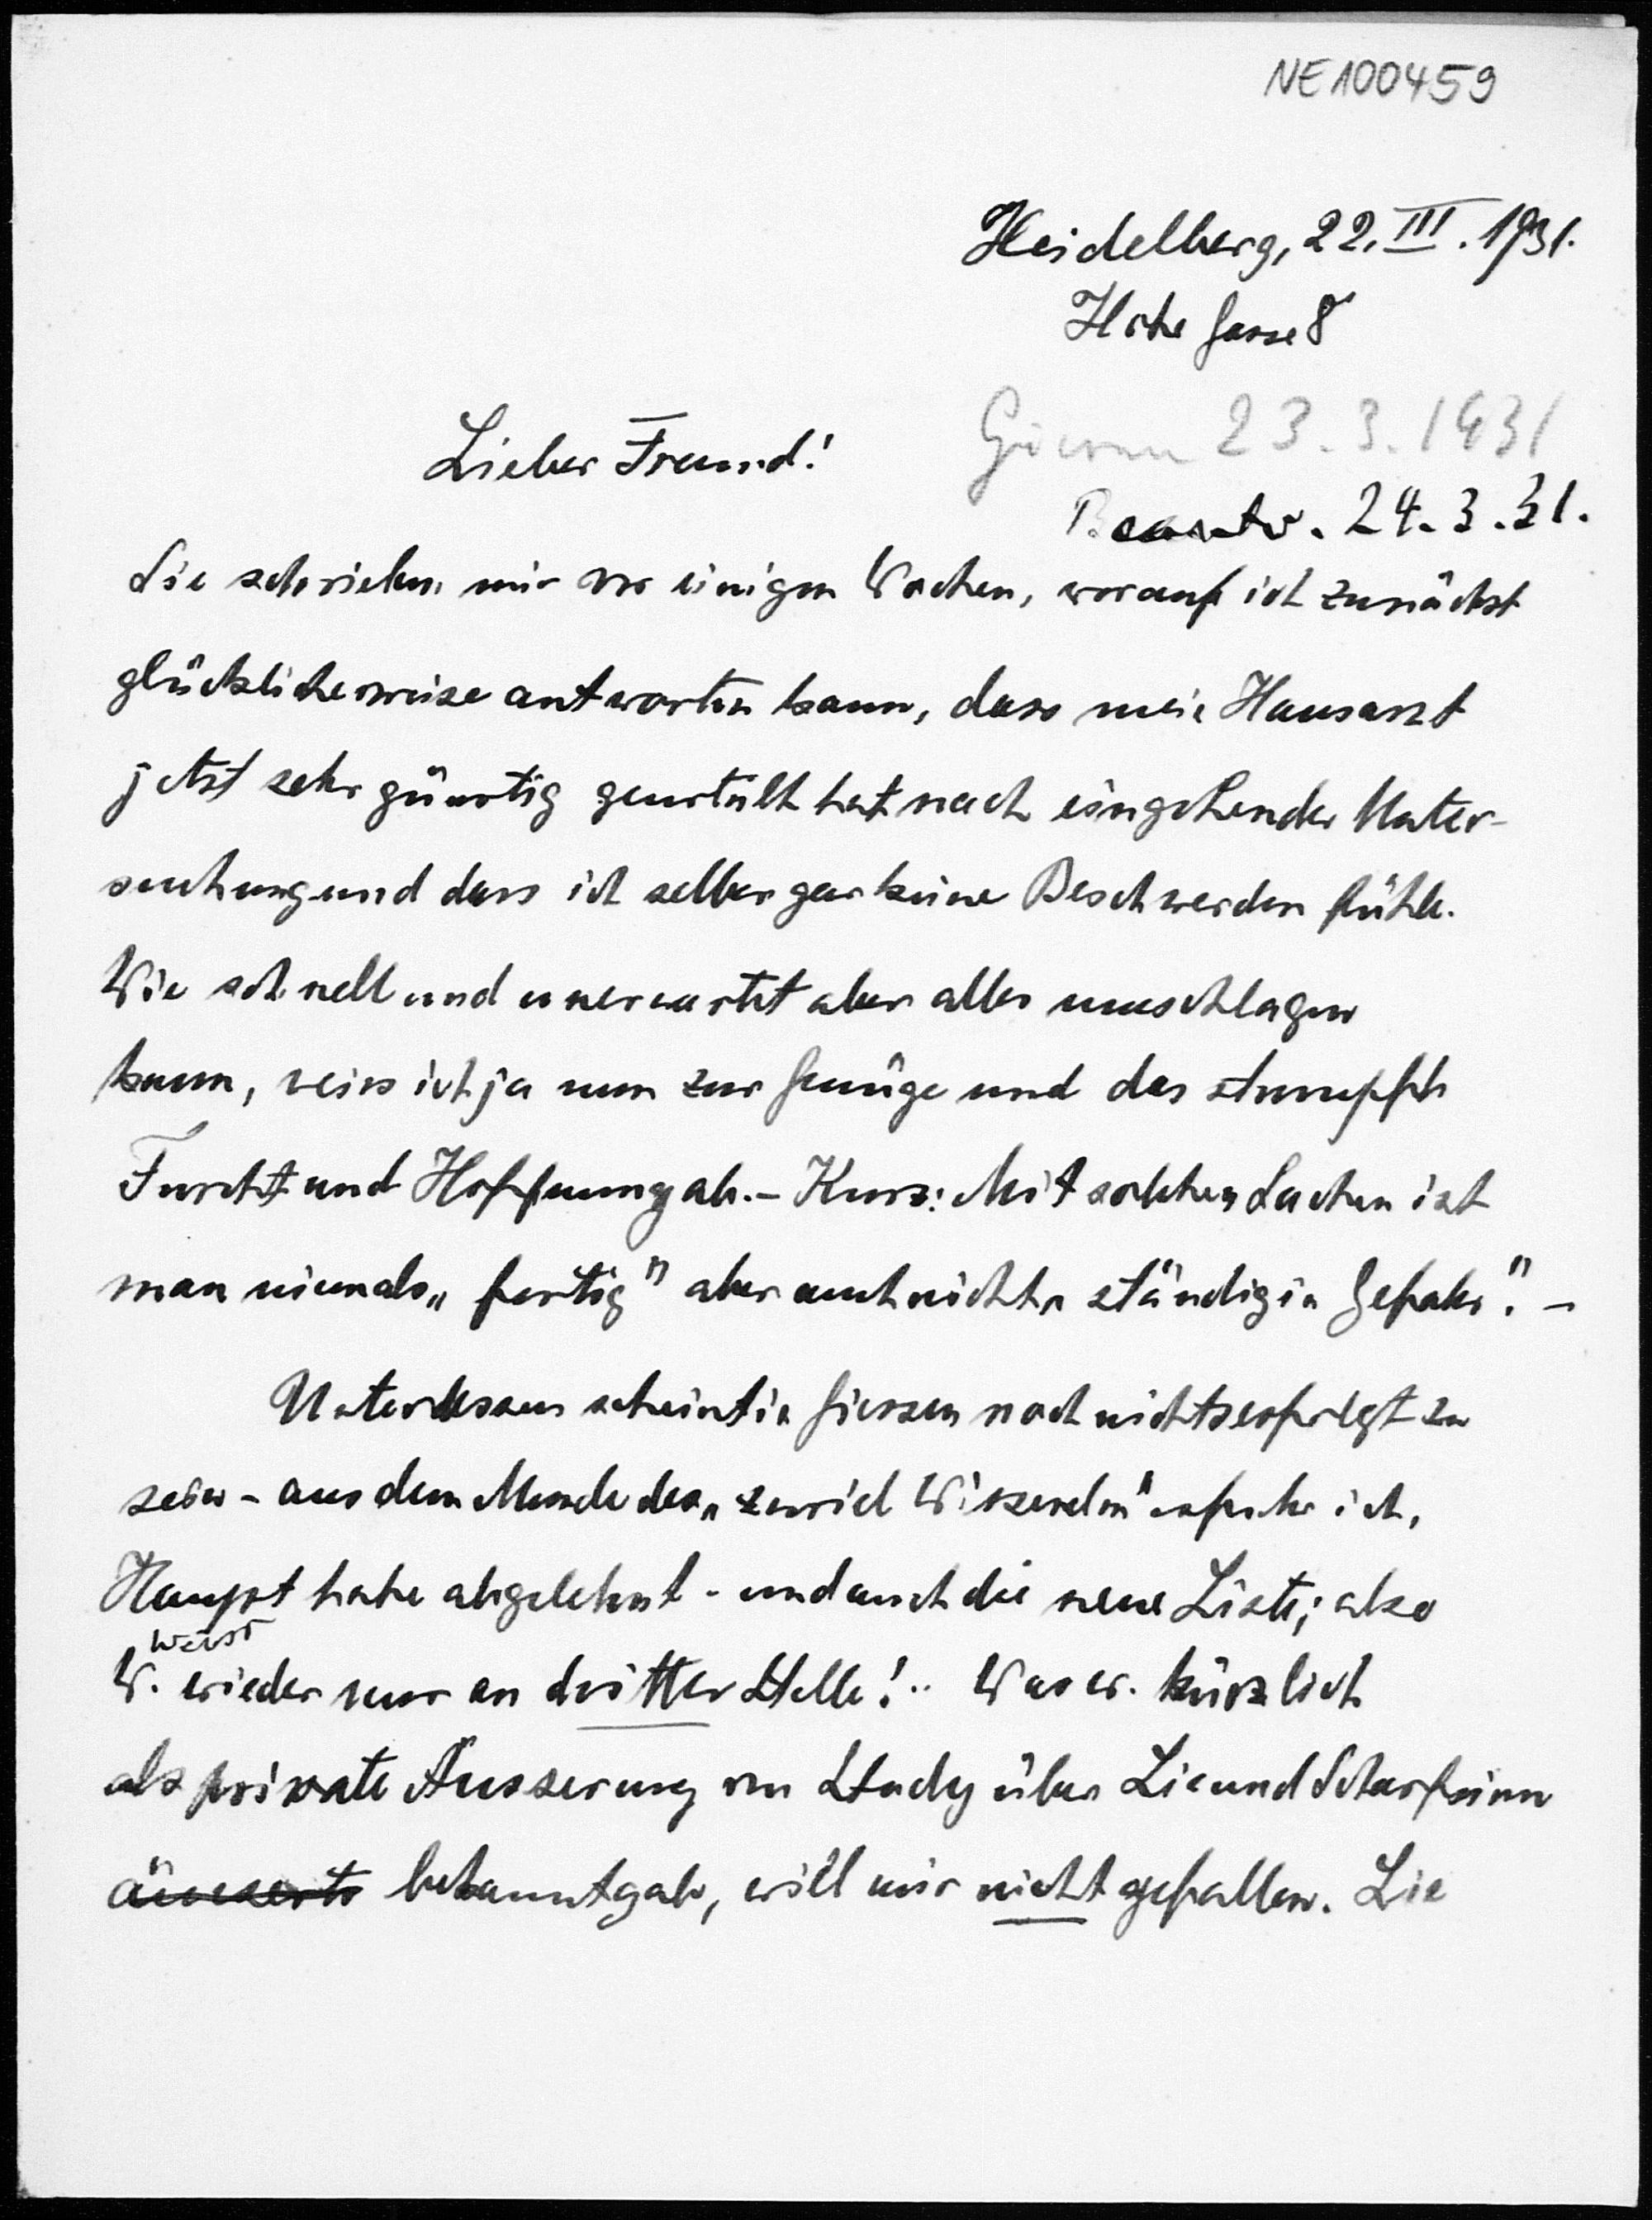 NE100459
Heidelberg, 22. III. 1931.
Hohe Gasse 8
23.3.1931
Lieber Freund!
Beantw. 24.3.31.
Sie schrieben mir vor einigen Wochen, worauf ich zunächst
glücklicherweise antworten kann, dass mein Hausarzt
jetzt sehr günstig geurteilt hat nach eingehender Unter-
suchung und dass ich selber gar keine Beschwerden fühle.
Wie schnell und unerwartet aber alles umschlagen
kann, weiss ich ja nun zur Genüge und das stumpft
Furcht und Hoffnung ab. – Kurz: Mit solchen Sachen ist
man niemals „fertig" aber auch nicht „ständig in Gefahr". –
Unterdessen scheint in Giessen noch nichts erfolgt zu
sein – aus dem Munde des „zuviel Wissenden" erfuhr ich,
Haupt habe abgelehnt – und auch die neue Liste; also
Weist
W. wieder nur an dritter Stelle!.. Was er kürzlich
als private Äusserung von Study über Lie und Scharfsinn
äusserte bekanntgab, will mir nicht gefallen. Lie